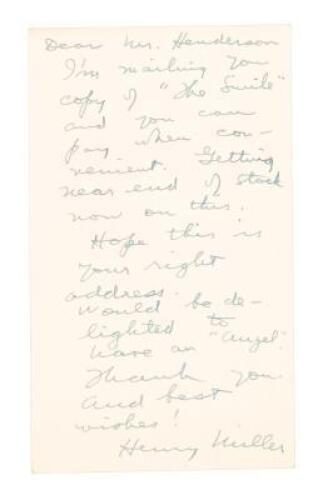 Dear Mr. Henderson
I'm mailing you
copy of "The Smile"
and you can
pay when con-
venient. Getting
near end of stock
now on this.
Hope this is
your right
address.
Would be de-
lighted to
have an "Angel".
Thank you
and best
wishes!
Henry Miller